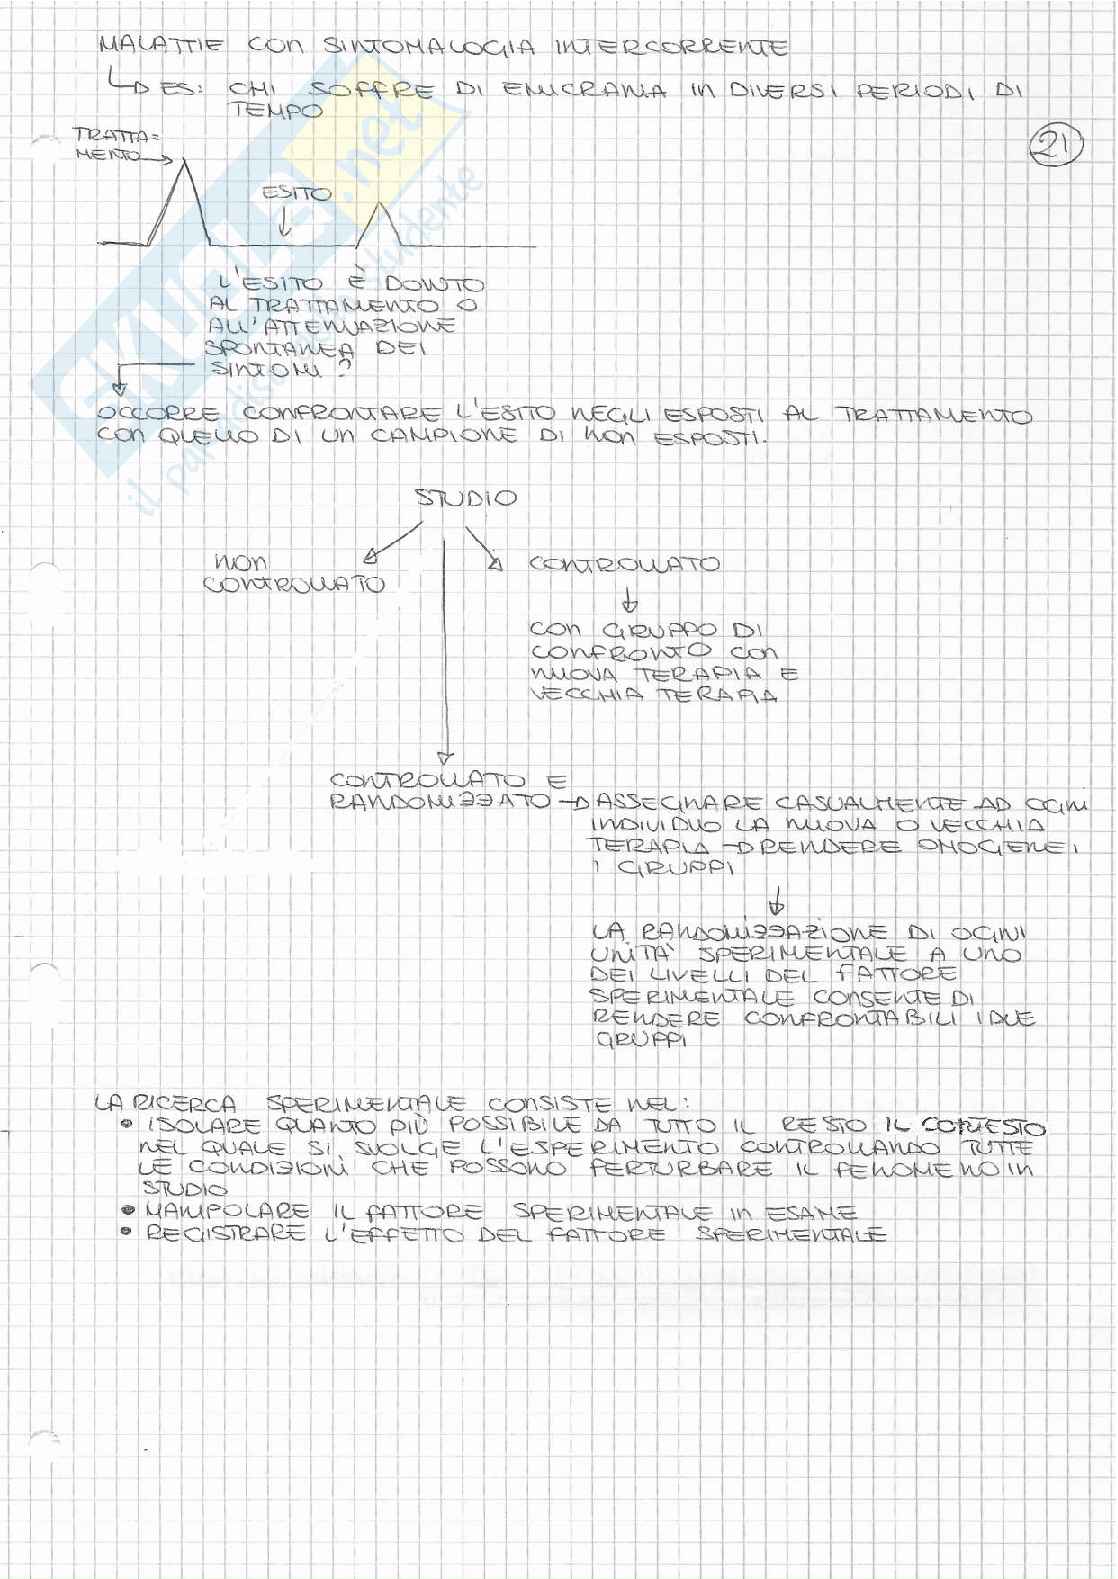 MALATTIE CON SINTOMALOGIA INTERCORRENTE
ES: CHI SOFFRE DI EMICRANIA IN DIVERSI PERIODI DI
TEMPO
21
TRATTA=
MENTO
ESITO
L'ESITO È DOVUTO
AL TRATTAMENTO O
ALL'ATTENUAZIONE
SPONTANEA DEI
SINTOMI?
OCCORRE CONFRONTARE L'ESITO NEGLI ESPOSTI AL TRATTAMENTO
CON QUELLO DI UN CAMPIONE DI NON ESPOSTI.
STUDIO
NON
CONTROLLATO
CONTROLLATO
CON GRUPPO DI
CONFRONTO CON
NUOVA TERAPIA E
VECCHIA TERAPIA
CONTROLLATO E
RANDOMIZZATO → ASSEGNARE CASUALMENTE AD OGNI
INDIVIDUO LA NUOVA O VECCHIA
TERAPIA → RENDERE OMOGENEI
I GRUPPI
LA RANDOMIZZAZIONE DI OGNI
UNITÀ SPERIMENTALE A UNO
DEI LIVELLI DEL FATTORE
SPERIMENTALE CONSENTE DI
RENDERE CONFRONTABILI I DUE
GRUPPI
LA RICERCA SPERIMENTALE CONSISTE NEL:
• ISOLARE QUANTO PIÙ POSSIBILE DA TUTTO IL RESTO IL CONTESTO
NEL QUALE SI SVOLGE L'ESPERIMENTO CONTROLLANDO TUTTE
LE CONDIZIONI CHE POSSONO PERTURBARE IL FENOMENO IN
STUDIO
• MANIPOLARE IL FATTORE SPERIMENTALE IN ESAME
• REGISTRARE L'EFFETTO DEL FATTORE SPERIMENTALE
SKUOLA.net
il paradiso dello studente